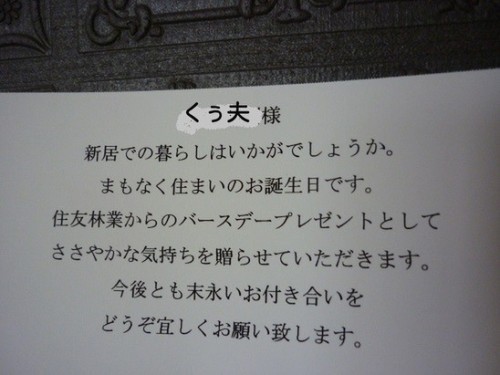 くぅ夫 様
新居での暮らしはいかがでしょうか。
まもなく住まいのお誕生日です。
住友林業からのバースデープレゼントとして
ささやかな気持ちを贈らせていただきます。
今後とも末永いお付き合いを
どうぞ宜しくお願い致します。